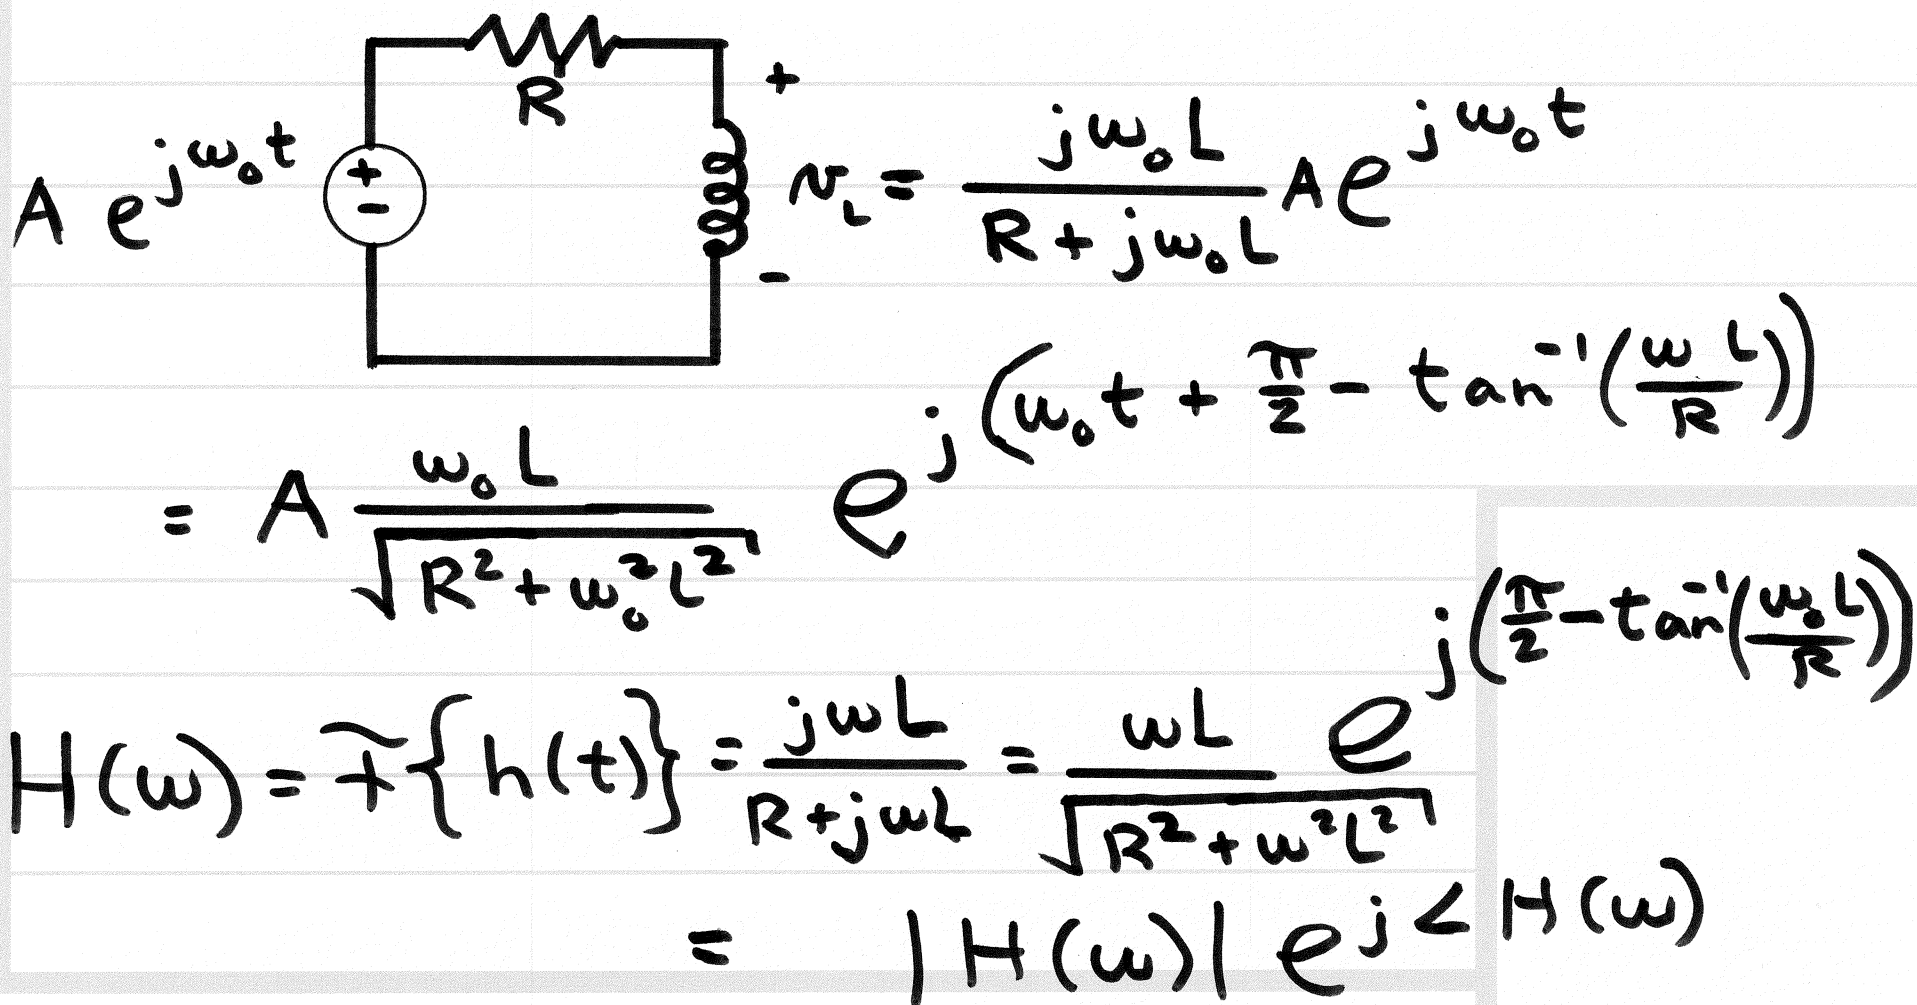 R
+
A e^{jω₀t} + - v_L = \frac{jω₀L}{R + jω₀L} A e^{jω₀t}
-
= A \frac{ω₀L}{\sqrt{R² + ω₀²L²}} e^{j(ω₀t + \frac{π}{2} - tan^{-1}(\frac{ωL}{R}))}
H(ω) = F{h(t)} = \frac{jωL}{R + jωL} = \frac{ωL}{\sqrt{R² + ω²L²}} e^{j(\frac{π}{2} - tan^{-1}(\frac{ω₀L}{R}))}
= |H(ω)| e^{j∠H(ω)}